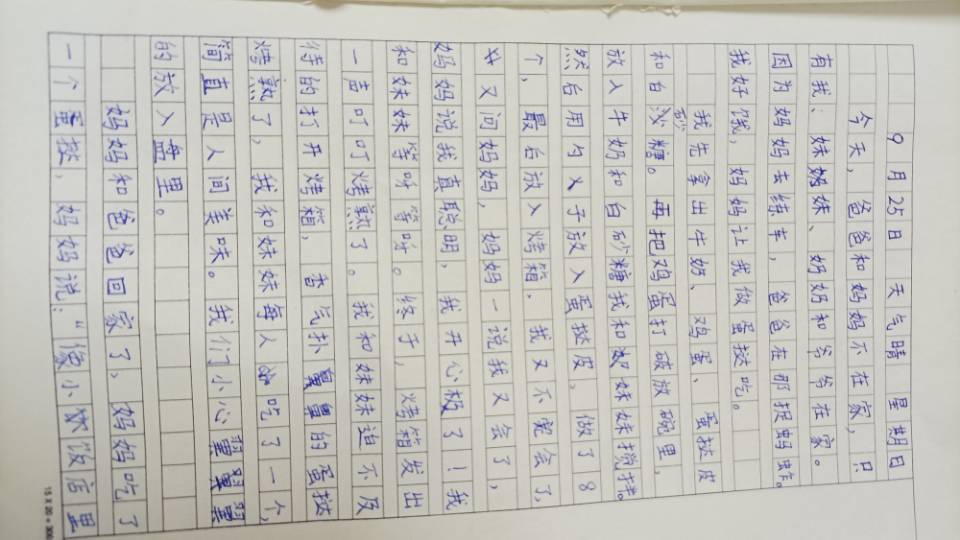 9月25日 天气晴 星期日
今天，爸爸和妈妈不在家，只
有我、妹妹、奶奶和爷爷在家。
因为妈妈去练车，爸爸在那报蚂蚱。
我好饿，妈妈让我做蛋挞吃。
我先拿出牛奶、鸡蛋、蛋挞皮
和白砂糖。再把鸡蛋打破放碗里，
放入牛奶和白砂糖我和妹妹搅拌。
然后用勺义子放入蛋挞皮，做了8
个，最后放入烤箱，我又不会了，
又问妈妈，妈妈一说我又会了，
妈妈说我真聪明，我开心极了！我
和妹妹等呀等呀。终于，烤箱发出
一声叮叮烤熟了。我和妹妹迫不及
待的打开烤箱，香气扑鼻的蛋挞
烤熟了，我和妹妹每人吃了一个，
简直是人间美味。我们小心翼翼
的放入盘里。
妈妈和爸爸回家了，妈妈吃了
一个蛋挞，妈妈说："像小饭店里
15×20＝300